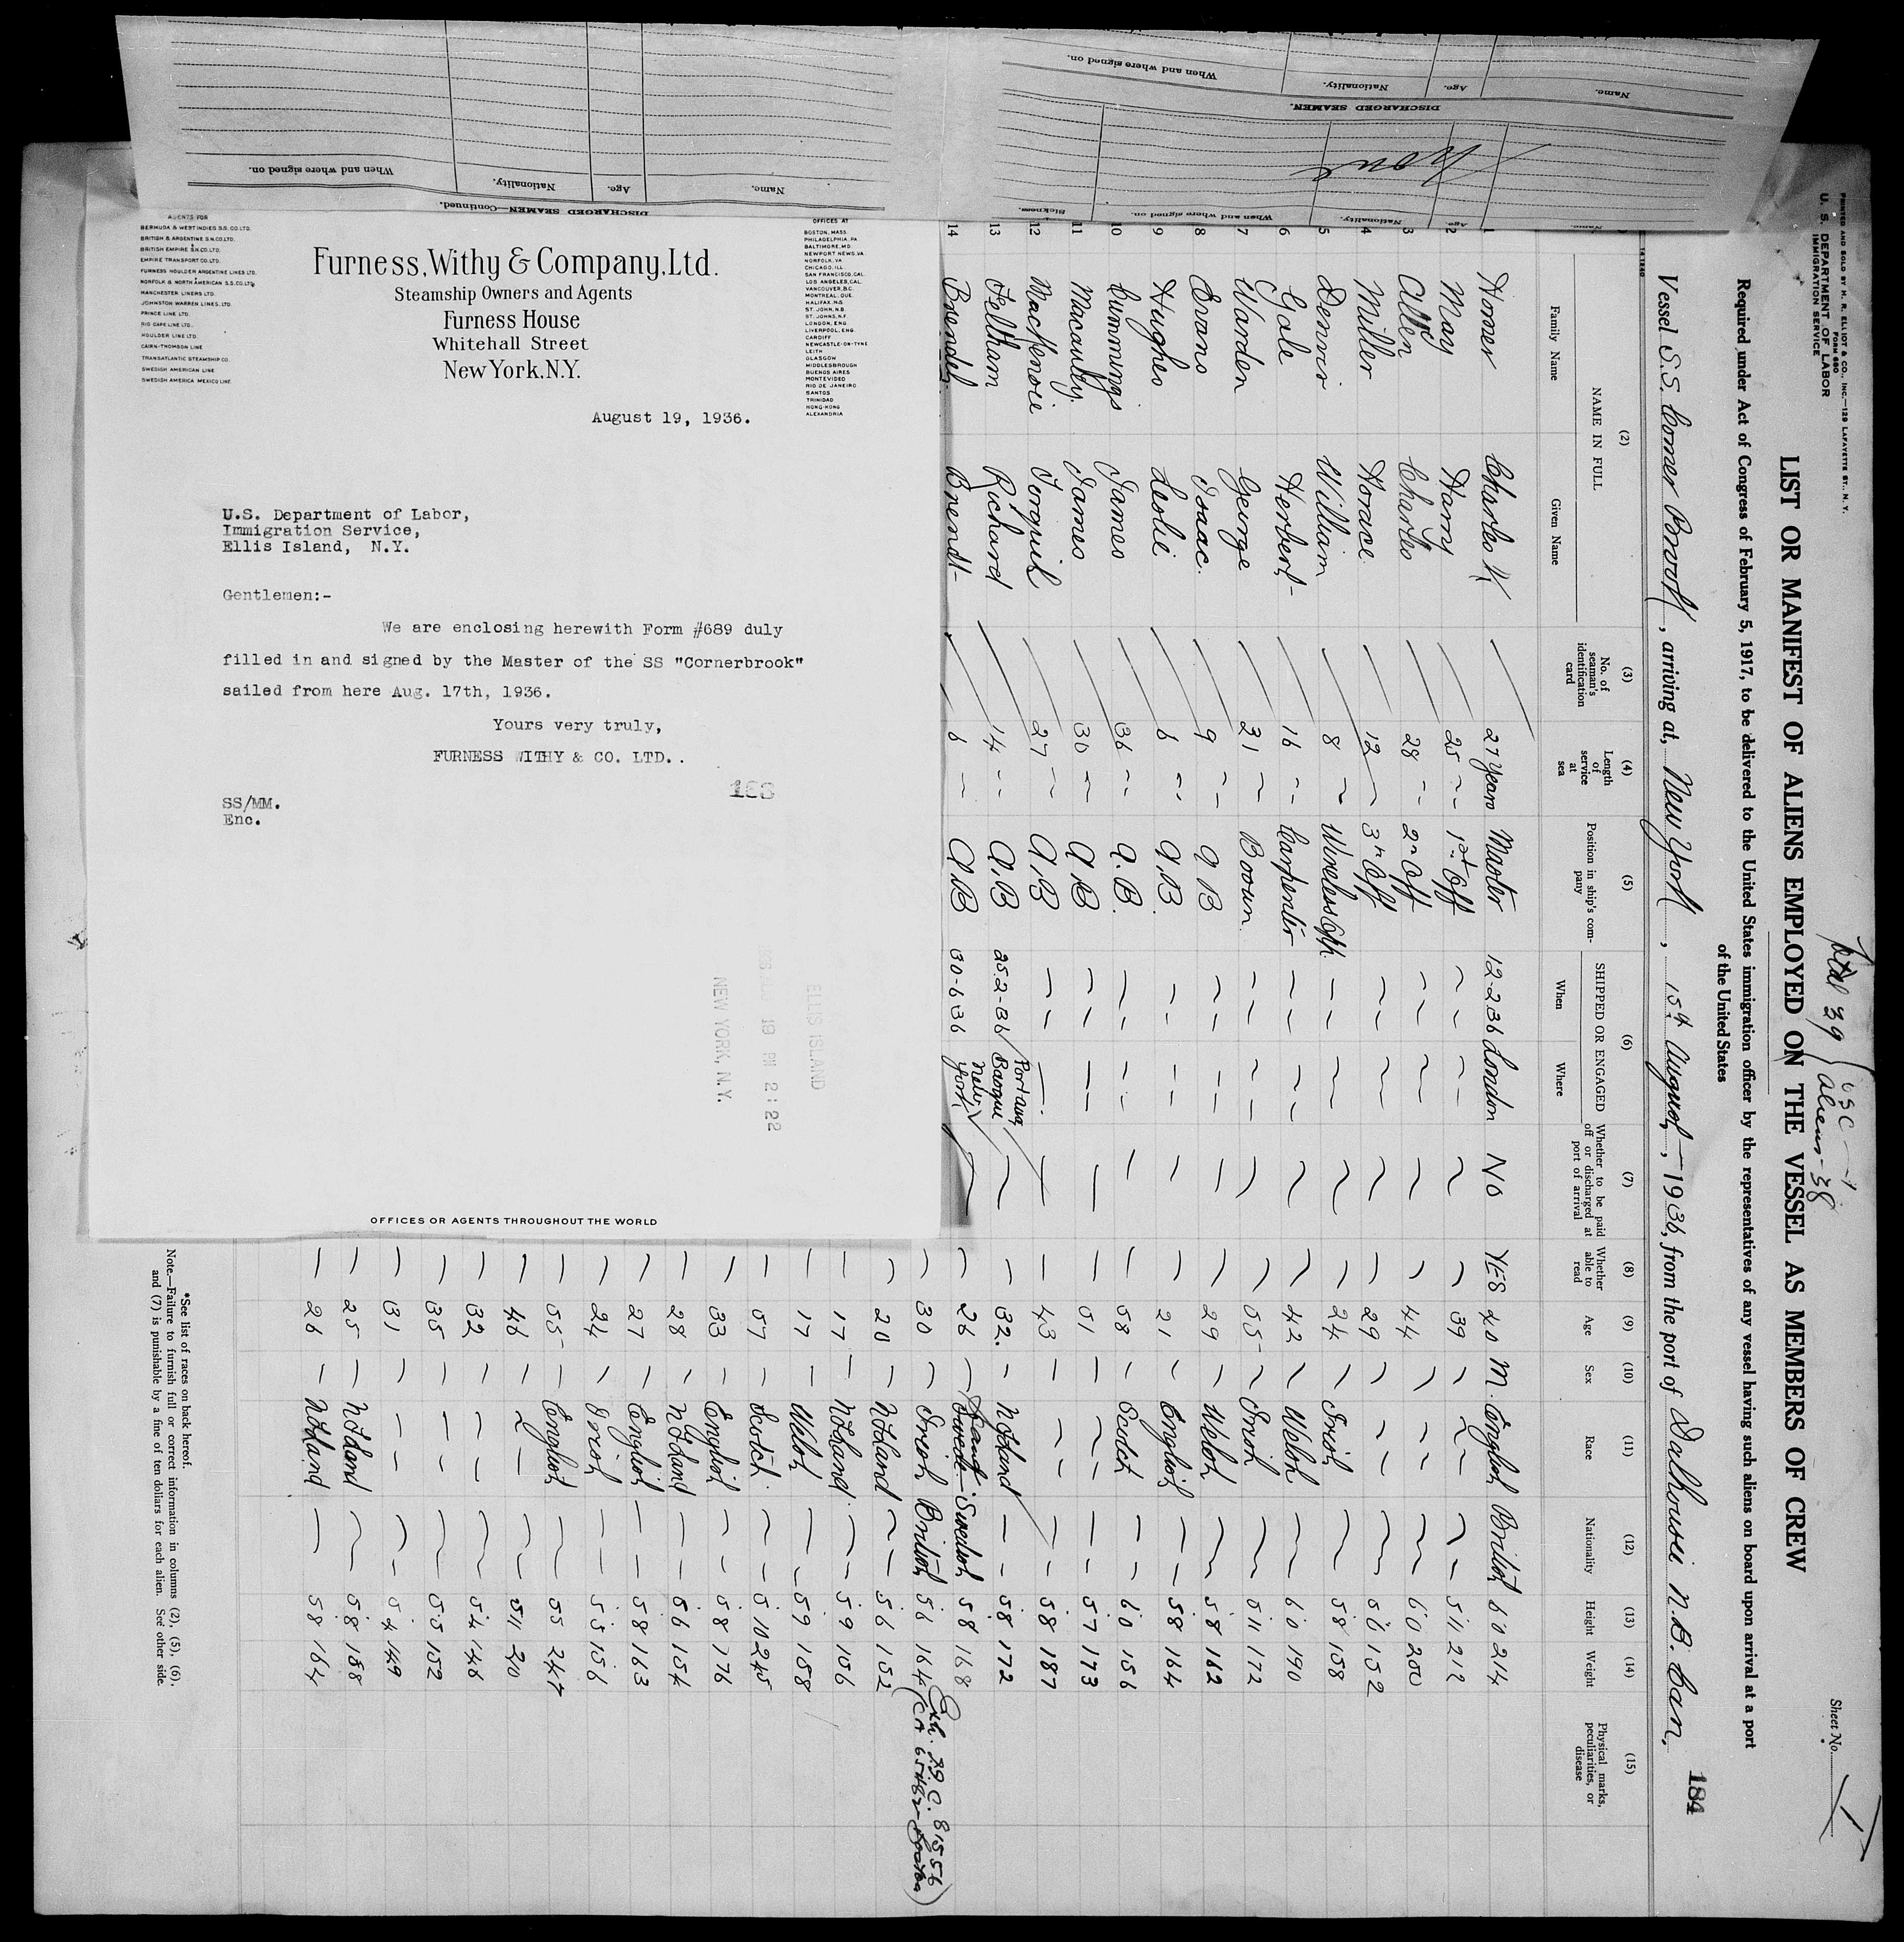 Furness, Withy & Company, Ltd.
Steamship Owners and Agents
Furness House
Whitehall Street
New York, N.Y.
AGENTS FOR
BERMUDA & WEST INDIES S.S. CO. LTD.
BRITISH & ARGENTINE S.N. CO. LTD.
BRITISH EMPIRE S.N. CO. LTD.
EMPIRE TRANSPORT CO. LTD.
FURNESS HOULDER ARGENTINE LINES LTD.
NORFOLK & NORTH AMERICAN S.S. CO. LTD.
MANCHESTER LINERS LTD.
JOHNSTON WARREN LINES, LTD.
PRINCE LINE LTD.
RIO CAPE LINE LTD.
HOULDER LINE LTD.
CAIRN-THOMSON LINE
TRANSATLANTIC STEAMSHIP CO.
SWEDISH AMERICAN LINE
SWEDISH AMERICA MEXICO LINE
OFFICES AT
BOSTON, MASS.
PHILADELPHIA, PA.
BALTIMORE, MD.
NEWPORT NEWS, VA.
NORFOLK, VA.
CHICAGO, ILL.
SAN FRANCISCO, CAL.
LOS ANGELES, CAL.
VANCOUVER, B.C.
MONTREAL, QUE.
HALIFAX, N.S.
ST. JOHN, N.B.
ST. JOHNS, N.F.
LONDON, ENG.
LIVERPOOL, ENG.
CARDIFF
NEWCASTLE-ON-TYNE
LEITH
GLASGOW
MIDDLESBROUGH
BUENOS AIRES
MONTEVIDEO
RIO DE JANEIRO
SANTOS
TRINIDAD
HONG-KONG
ALEXANDRIA
August 19, 1936.
U.S. Department of Labor,
Immigration Service,
Ellis Island, N.Y.
Gentlemen:-
We are enclosing herewith Form #689 duly
filled in and signed by the Master of the SS "Cornerbrook"
sailed from here Aug. 17th, 1936.
Yours very truly,
FURNESS WITHY & CO. LTD..
SS/MM.
Enc.
ELLIS ISLAND
19 PM 2:22
NEW YORK, N.Y.
OFFICES OR AGENTS THROUGHOUT THE WORLD
DISCHARGED SEAMEN.
Name. Age. Nationality. When and where signed on.
None
DISCHARGED SEAMEN—Continued.
Name. Age. Nationality. When and where signed on.
PRINTED AND SOLD BY H. R. ELLIOT & CO., INC.—129 LAFAYETTE ST., N.Y.
FORM 680
U. S. DEPARTMENT OF LABOR
IMMIGRATION SERVICE
Total 39 USC - 1
Aliens - 38
Sheet No. 1
LIST OR MANIFEST OF ALIENS EMPLOYED ON THE VESSEL AS MEMBERS OF CREW
Required under Act of Congress of February 5, 1917, to be delivered to the United States immigration officer by the representatives of any vessel having such aliens on board upon arrival at a port
of the United States
184
Vessel S.S. Corner Brook, arriving at, New York, 15th August, 1936, from the port of Dalhousie N.B. Can.
(2) NAME IN FULL Family Name Given Name
(3) No. of seaman's identification card
(4) Length of service at sea
(5) Position in ship's company
(6) SHIPPED OR ENGAGED When Where
(7) Whether to be paid off or discharged at port of arrival
(8) Whether able to read
(9) Age
(10) Sex
(11) Race
(12) Nationality
(13) Height
(14) Weight
(15) Physical marks, peculiarities, or disease
1 Horner Charles 27 Years Master 12-2-36 London NO YES 40 M. English British 6 0 214
2 May Harry 25 1st Off 39 5 11 212
3 Allen Charles 28 2nd Off 44 6 0 200
4 Miller Horace 12 3rd Off 29 5 6 152
5 Dennis William 8 Wireless Opr. 24 Irish 5 8 158
6 Gale Herbert 16 Carpenter 42 Welsh 6 0 190
7 Warden George 31 Bosun 55 Irish 5 11 172
8 Evans Isaac 9 A.B 29 Welsh 5 8 162
9 Hughes Leslie 6 A.B 21 English 5 8 164
10 Cummings James 36 A.B. 58 Scotch 6 0 156
11 Macaulay James 30 A.B 51 5 7 173
12 MacKenzie Torquil 27 A.B 43 5 8 187
13 Feltham Richard 14 A.B 25-2-36 Port aux Basque 32 Nfland 5 8 172
14 Brendt 6 A.B 30-6-36 New York 26 Scand Swedish 5 8 168
30 Irish British 5 6 164
20 Nfland 5 6 152
17 Nfland 5 9 156
17 Welsh 5 9 158
57 Scotch 5 10 245
33 English 5 8 176
28 Nfland 5 6 154
27 English 5 8 163
24 Irish 5 5 156
55 English 5 5 247
46 5 11
32 5 4 146
35 5 5 152
31 5 4 149
25 Nfland 5 8 158
26 Nfland 5 8 164
*See list of races on back hereof.
Note.—Failure to furnish full or correct information in columns (2), (5), (6),
and (7) is punishable by a fine of ten dollars for each alien. See other side.